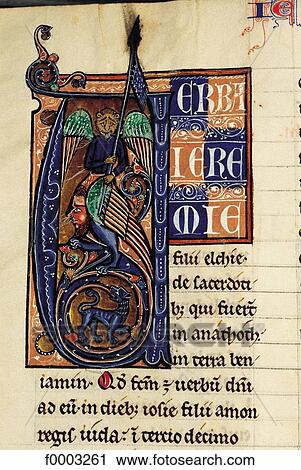 ERBA
IERE
MIE
filii elchie.
de sacerdoti
b; qui fuer̄t
in anathoth.
in terra ben
iamin. Qd̄ fc̄m ē uerbū dn̄i
ad eū in dieb; iosie filii amon
regis iuda: ī tercio decimo
f0003261 www.fotosearch.com